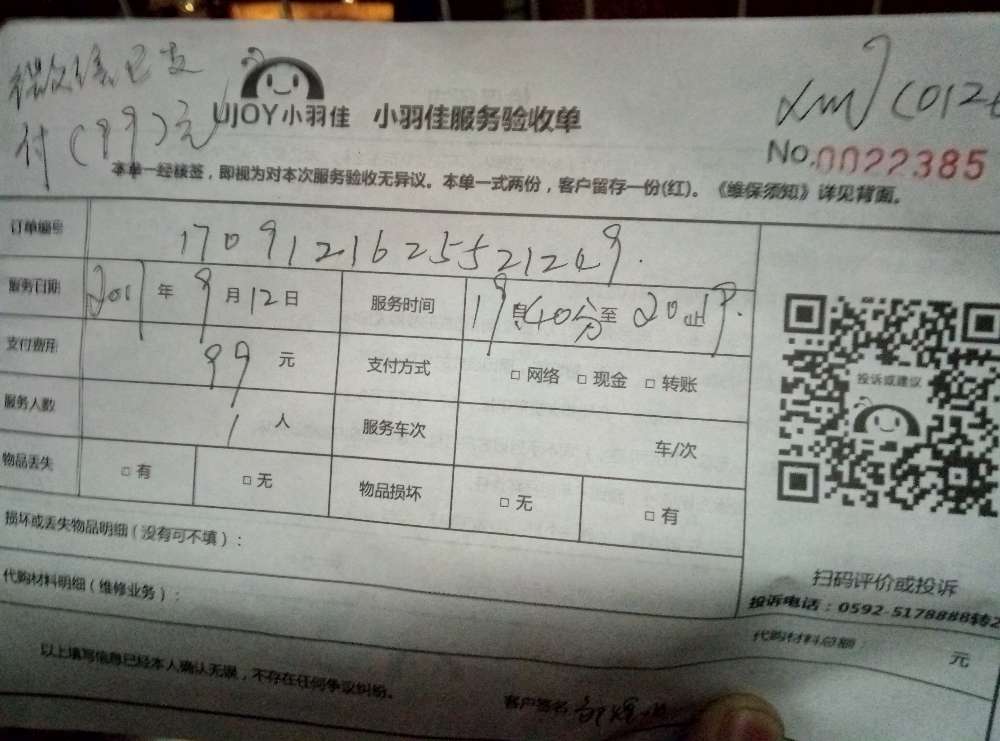 微信已支
付(99)元
UJOY小羽佳 小羽佳服务验收单
XMJC012
No.0022385
本单一经核签，即视为对本次服务验收无异议。本单一式两份，客户留存一份(红)。《维保须知》详见背面。
订单编号 17091216255521249
服务日期 2017年9月12日 服务时间 19时40分至20时止
支付费用 99元 支付方式 □网络 □现金 □转账
服务人数 1人 服务车次 车/次
物品丢失 □有 □无 物品损坏 □无 □有
投诉或建议
损坏或丢失物品明细（没有可不填）：
扫码评价或投诉
投诉电话：0592-5178888转2
代购材料明细（维修业务）：
代购材料总额 元
以上填写信息已经本人确认无误，不存在任何争议纠纷。
客户签名